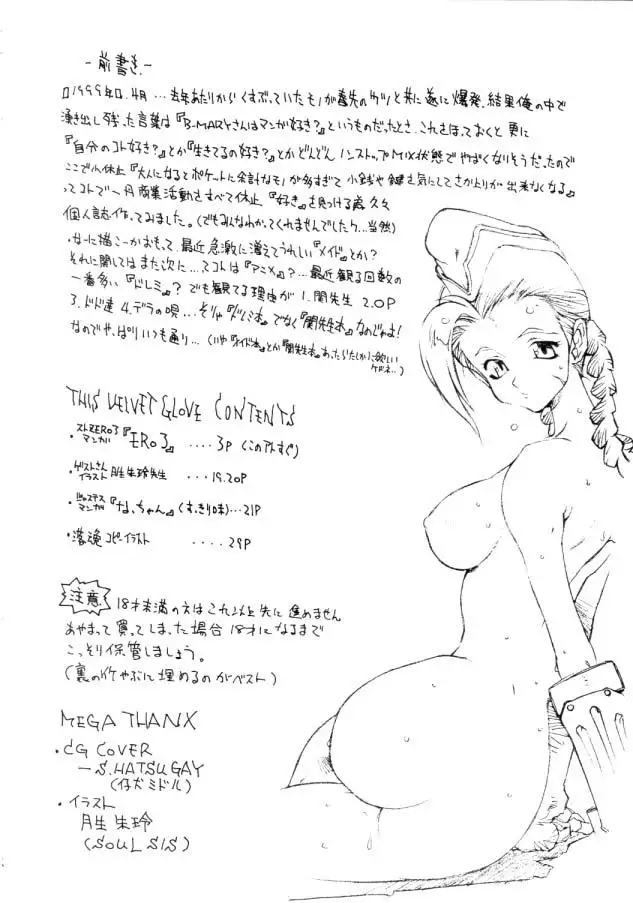 -前書き-
□1999年□.4月...去年あたりからくすぶっていたモノが春先のケツと共に遂に爆発、結果俺の中で
湧き出し残った言葉は『B-MARYさんはマンガ好き?』というものだったとさ、これさほっておくと更に
『自分のコト好き?』とか『生きてるの好き?』とかどんどんノンストップMIX状態でやばくなりそうだったので
ここで小休止『大人になるとポケットに余計なモノが多すぎて小銭や鍵を気にしてさか上りが出来なくなる』
ってコトで一月商業活動をすべて休止『好き』を見つける為久々
個人誌作ってみました。(でもみんなわかってくれませんでしたケ...当然)
なーに描こーかおもって、最近急激に増えてうれしい『メイド』とか?
それに関してはまた次に...てコトは『アニメ』?...最近観る回数の
一番多い『ドレミ』? でも観てる理由が 1.関先生 2.OP
3.ドド達 4.デラの唄...そりゃ『ドレミ本』でなく『関先生本』なのじゃよ!
なのでやっぱりいつも通り...(いや『メイド本』とか『関先生本』あったらたしかに欲しい
ケドネ..)
THIS VELVET GLOVE CONTENTS
・ストZERO3マンガ『ERO3』....3P(このアトすぐ)
・ゲストさんイラスト 月生朱玲先生...19.20P
・ジャスティスマンガ『なっちゃん』(すっきり味)...21P
・落魂コピーイラスト ....29P
注意 18才未満の方はこれ以上先に進めません
あやまって買ってしまった場合18才になるまで
こっそり保管しましょう。
(裏のイケやぶに埋めるのがベスト)
MEGA THANX
・CG COVER
―S.HATSUGAY
(仔犬ミドル)
・イラスト
月生朱玲
(SOUL SIS)